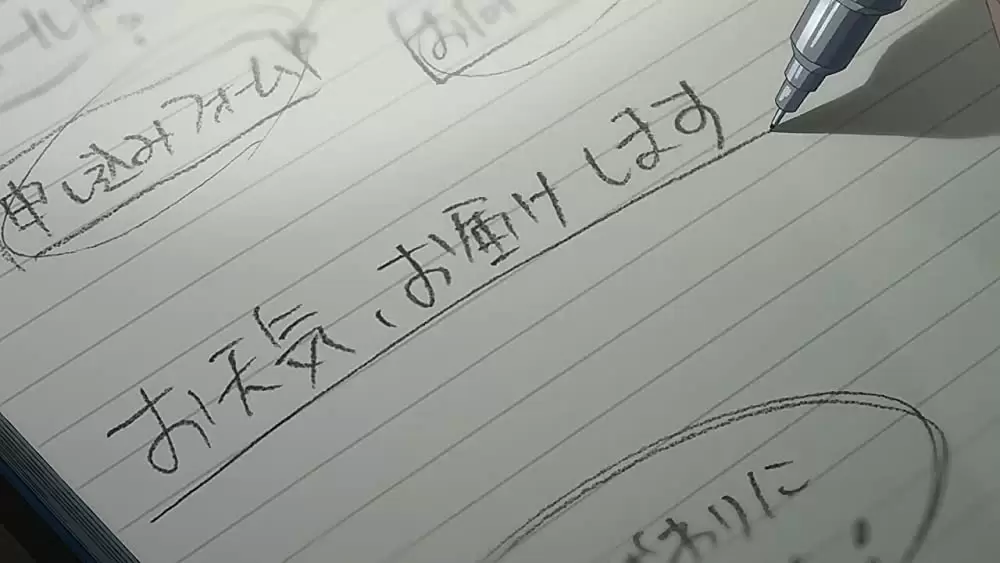 申し込みフォーム
お天気、お届けします
わりに